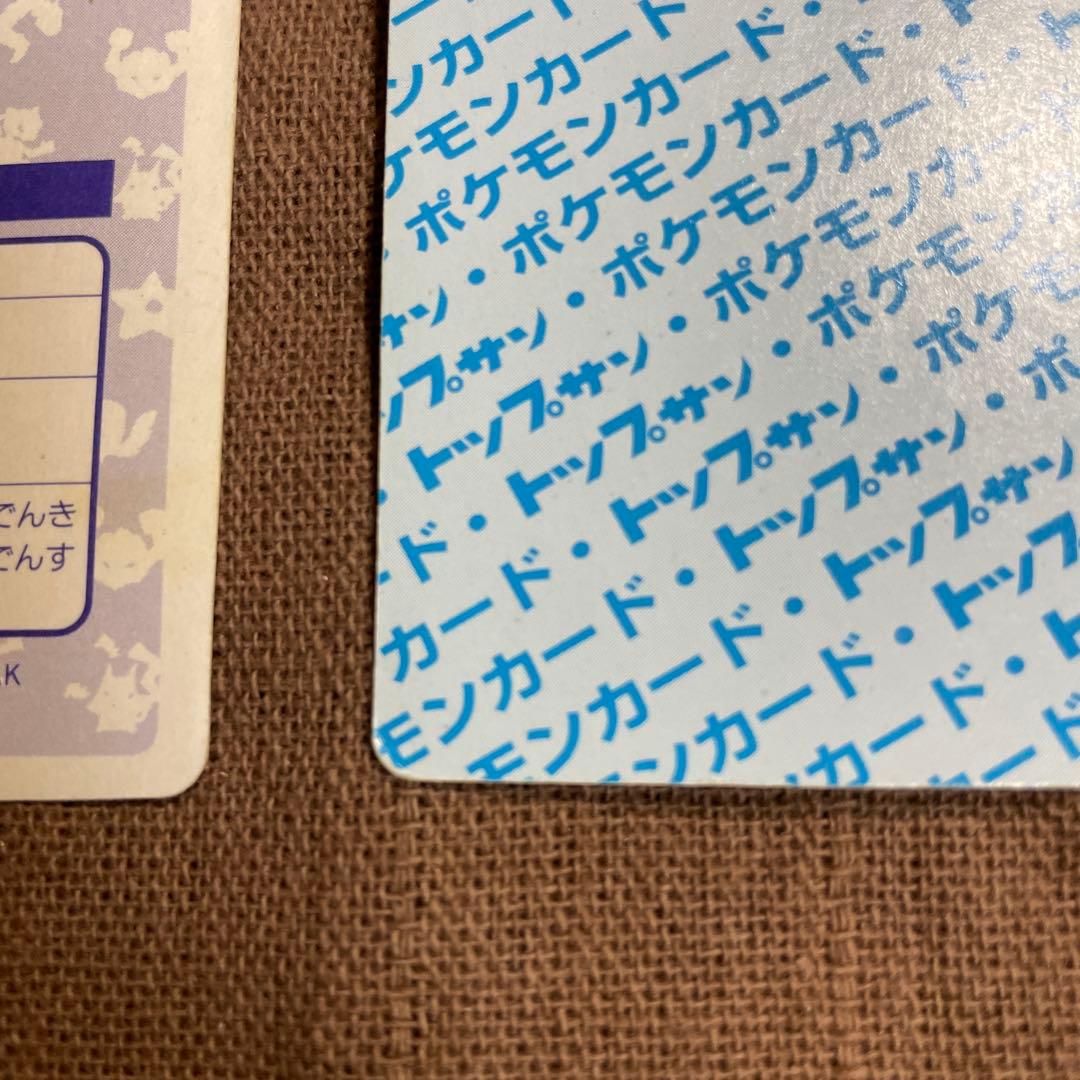 でんき
でんす
K
ンカー
ンカード
ケモンカード
ポケモンカード・
サン・ポケモンカード・
ップサン・ポケモンカード・ト
・トップサン・ポケモンカード
ード・トップサン・ポケモンカー
カード・トップサン・ポケモン
モンカード・トップサン・ポケモ
モンカード・トップサン・ポ
ンカード・トップサン
カード・トップ
ード・ト
ード